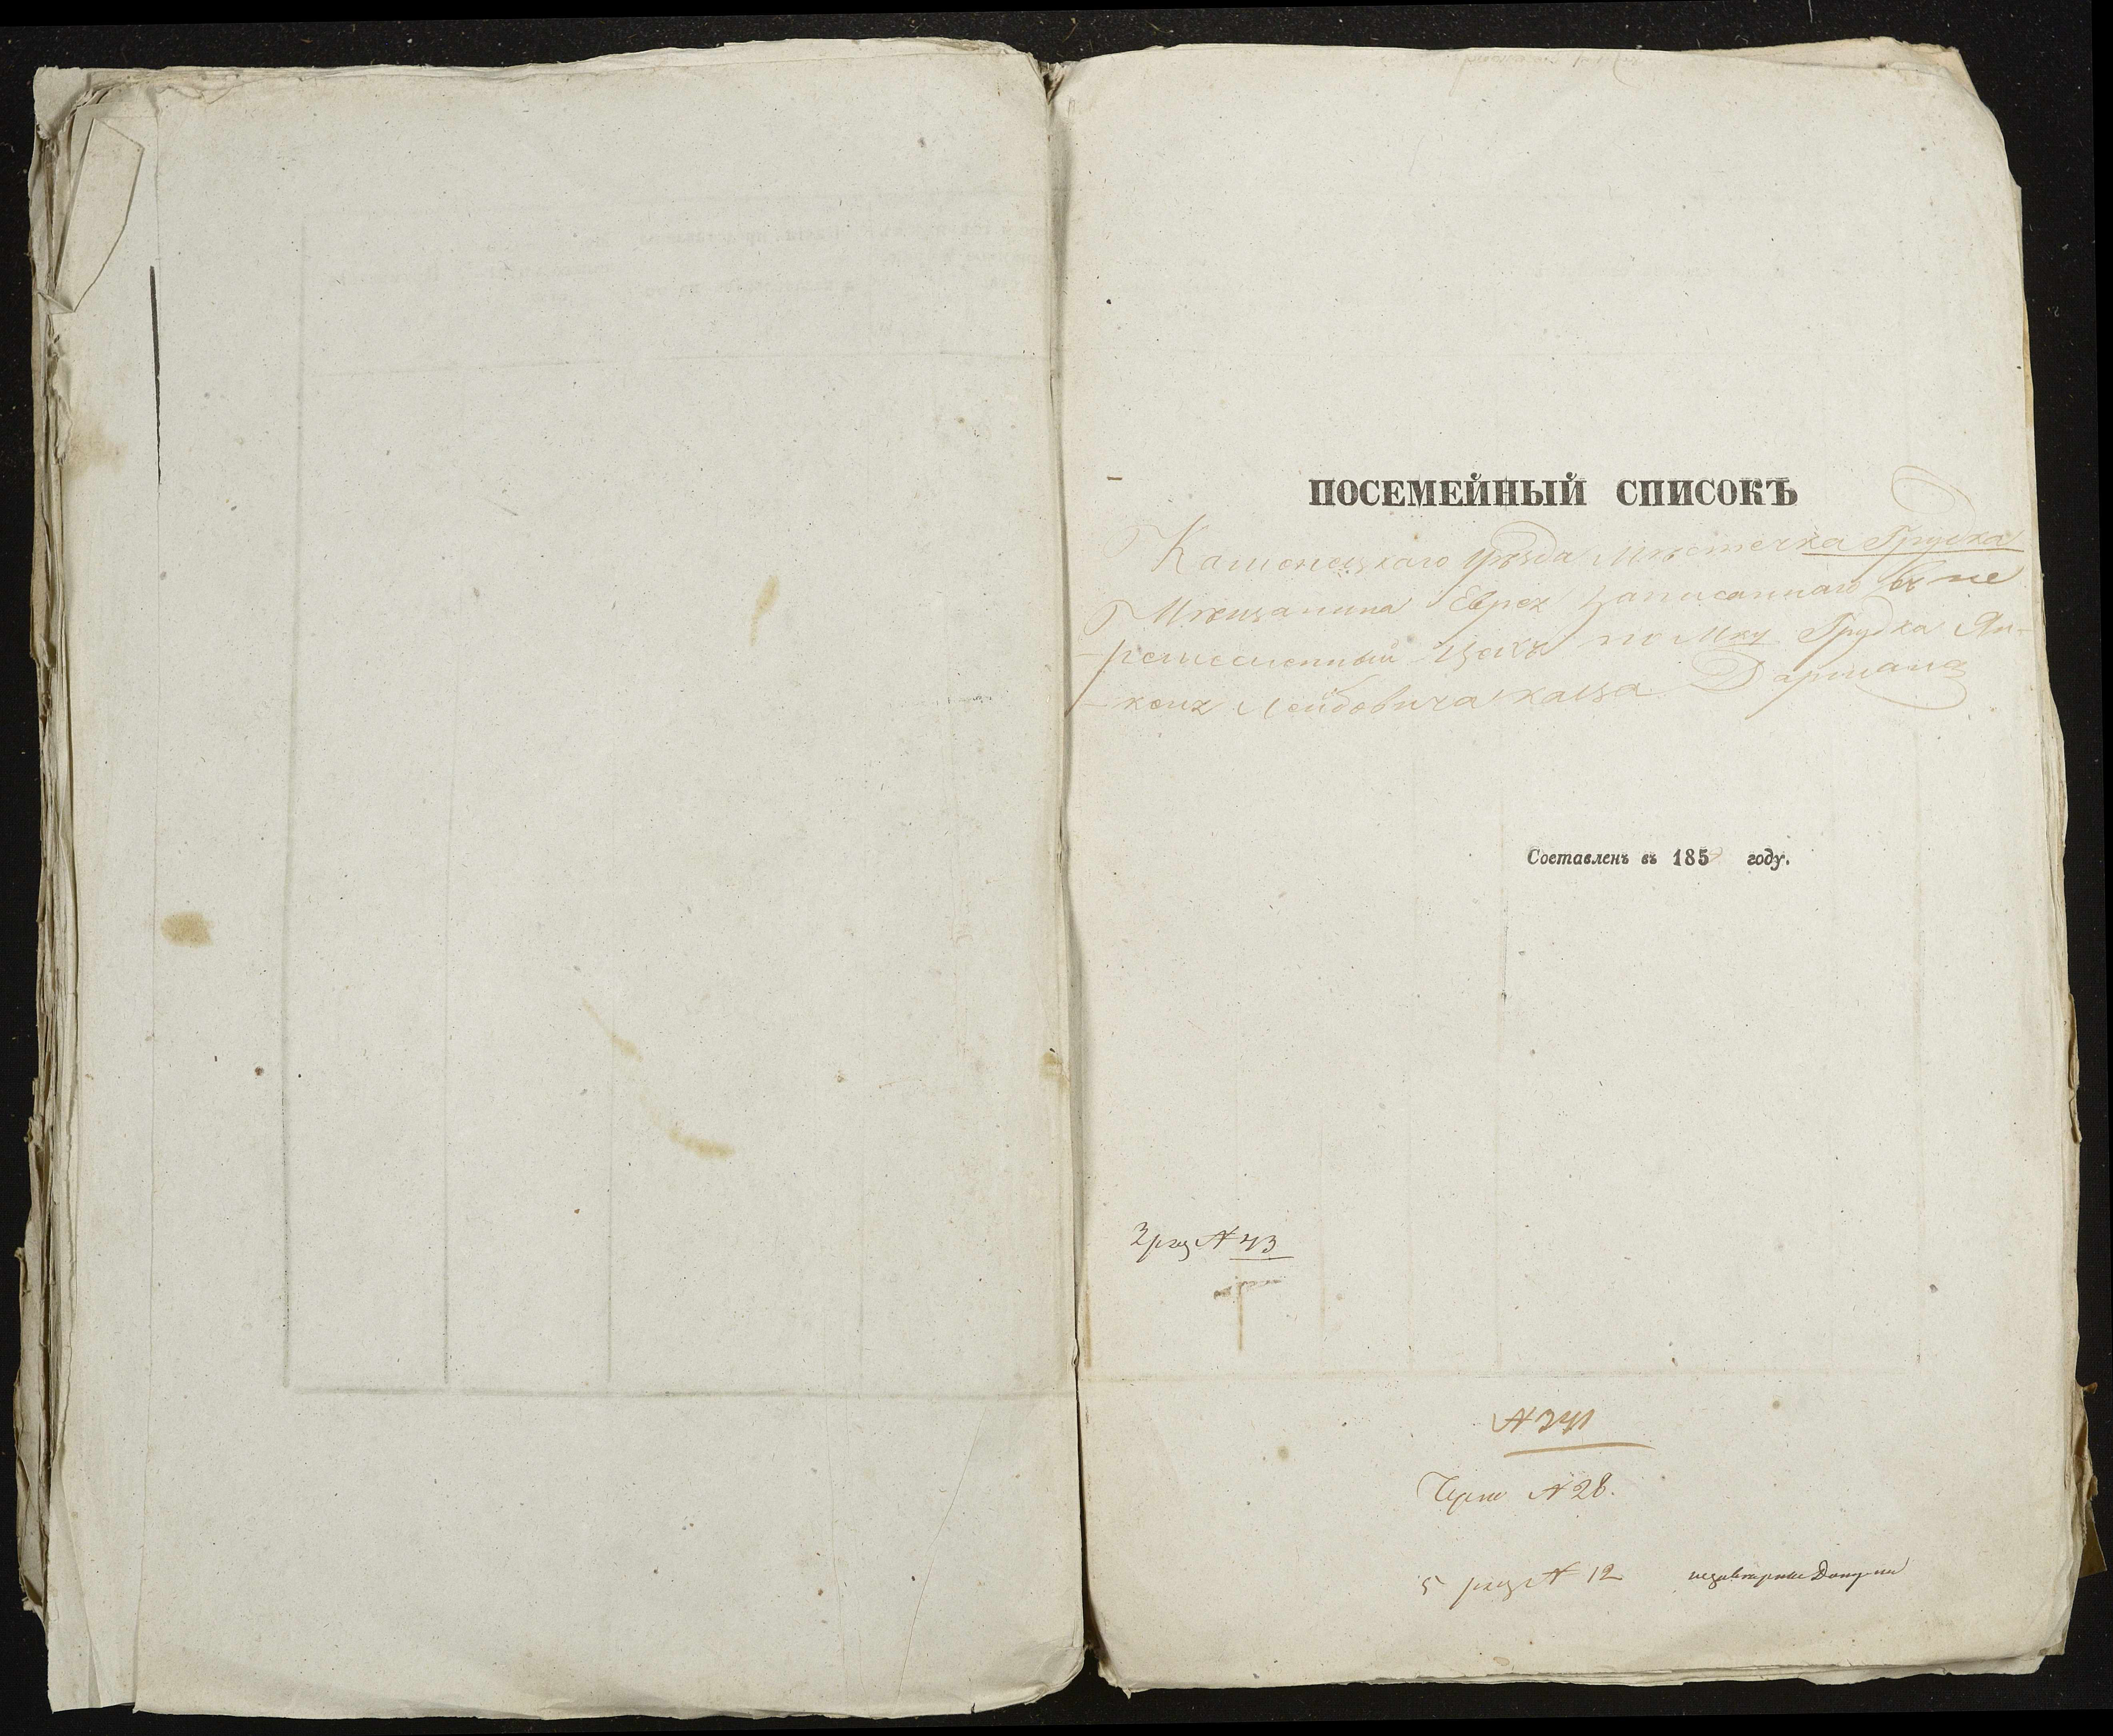 ПОСЕМЕЙНЫЙ СПИСОКЪ
Каменецкаго уѣзда Мѣстечка Грудка
Мѣщанина Еврея записаннаго въ не
ремесленный цехъ по Мку Грудка Ян-
келя Лейбовича Каца Дармана
Составленъ въ 185 году.
№ 43
№ 341
№ 28.
5 раз № 12